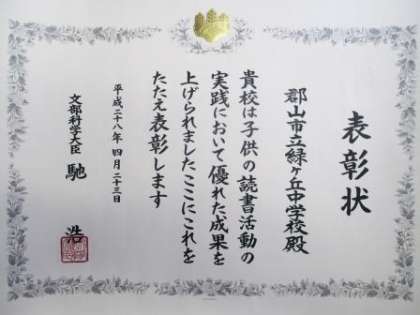 表彰状
郡山市立緑ヶ丘中学校殿
貴校は子供の読書活動の
実践において優れた成果を
上げられましたここにこれを
たたえ表彰します
平成二十八年四月二十三日
文部科学大臣 馳 浩